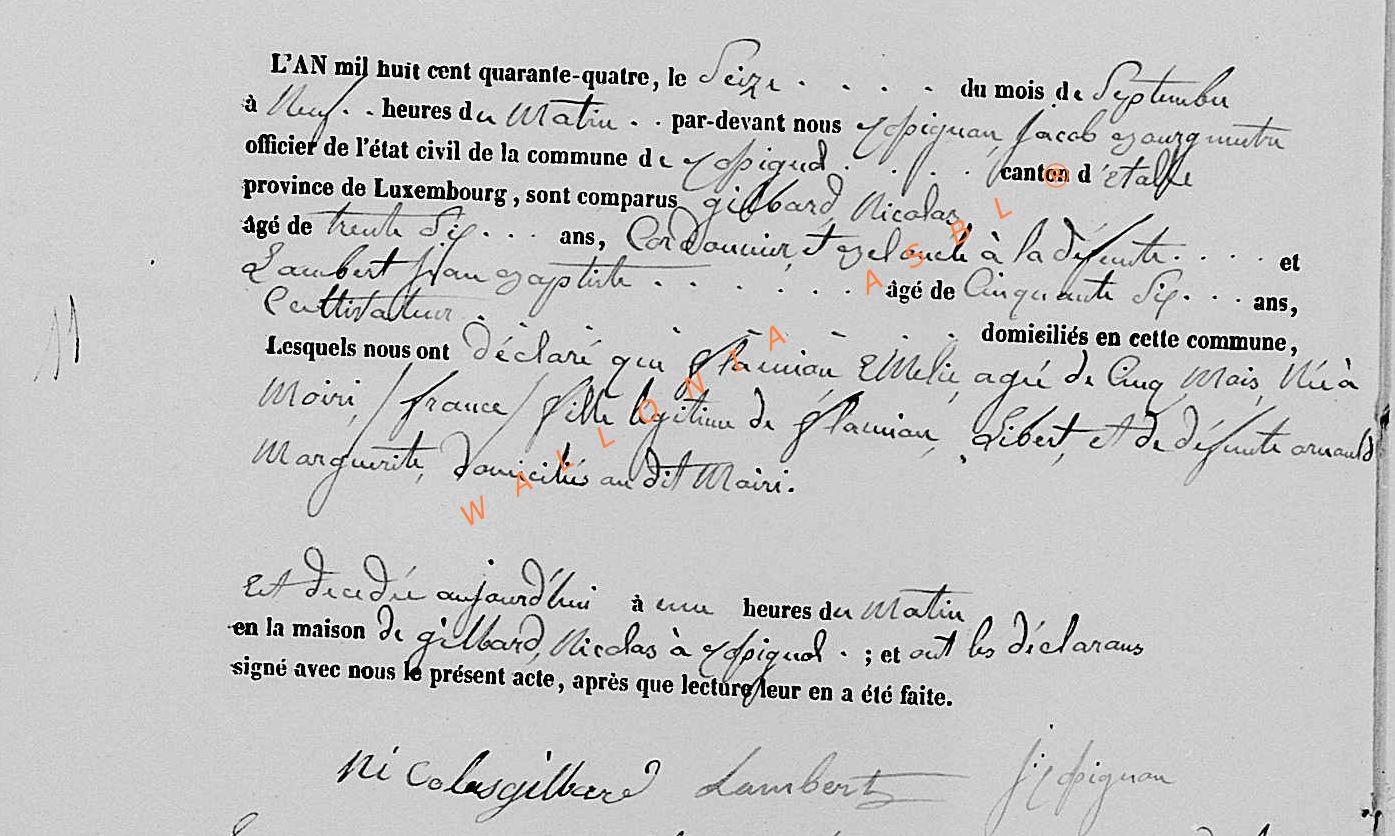 L'AN mil huit cent quarante-quatre, le Seize . . . . du mois de Septembre
à Neuf . . heures du Matin . . par-devant nous Jacob Bourgmestre
officier de l'état civil de la commune de . . . . canton d'étalle
province de Luxembourg, sont comparus gilbard, Nicolas,
âgé de trente Six . . . ans, Cordonnier, et à la défunte . . . . et
Lambert Jean Baptiste . . . . . . . âgé de Cinquante Six . . . ans,
Cultivateur . . . . . domiciliés en cette commune,
Lesquels nous ont déclaré que flamion EMelie, agée de Cinq Mois, Née à
Moiri, / france / fille légitime de flamion, Libert, et de défunte arnould
Marguerite, domiciliés au dit Moiri.
Et decedée aujourd'hui à une heures du Matin
en la maison de gilbard, Nicolas à . ; et ont les déclarans
signé avec nous le présent acte, après que lecture leur en a été faite.
Nicolas gilbard Lambert
WALLONIA ASBL ©